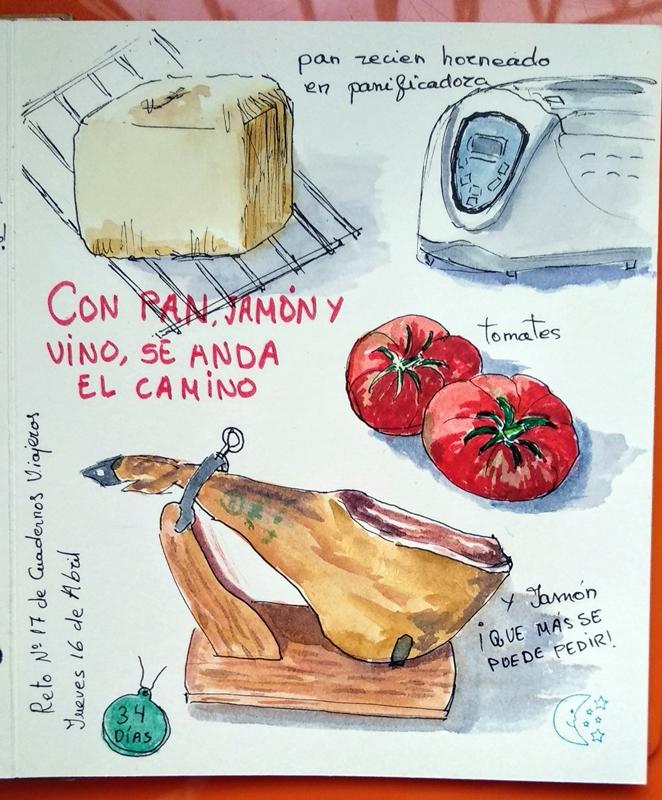 pan recien horneado
en panificadora
CON PAN, JAMÓN Y
VINO, SE ANDA
EL CAMINO
tomates
y Jamón
¡QUE MÁS SE
PUEDE PEDIR!
Reto Nº 17 de Cuadernos Viajeros
Jueves 16 de Abril
34
DÍAS